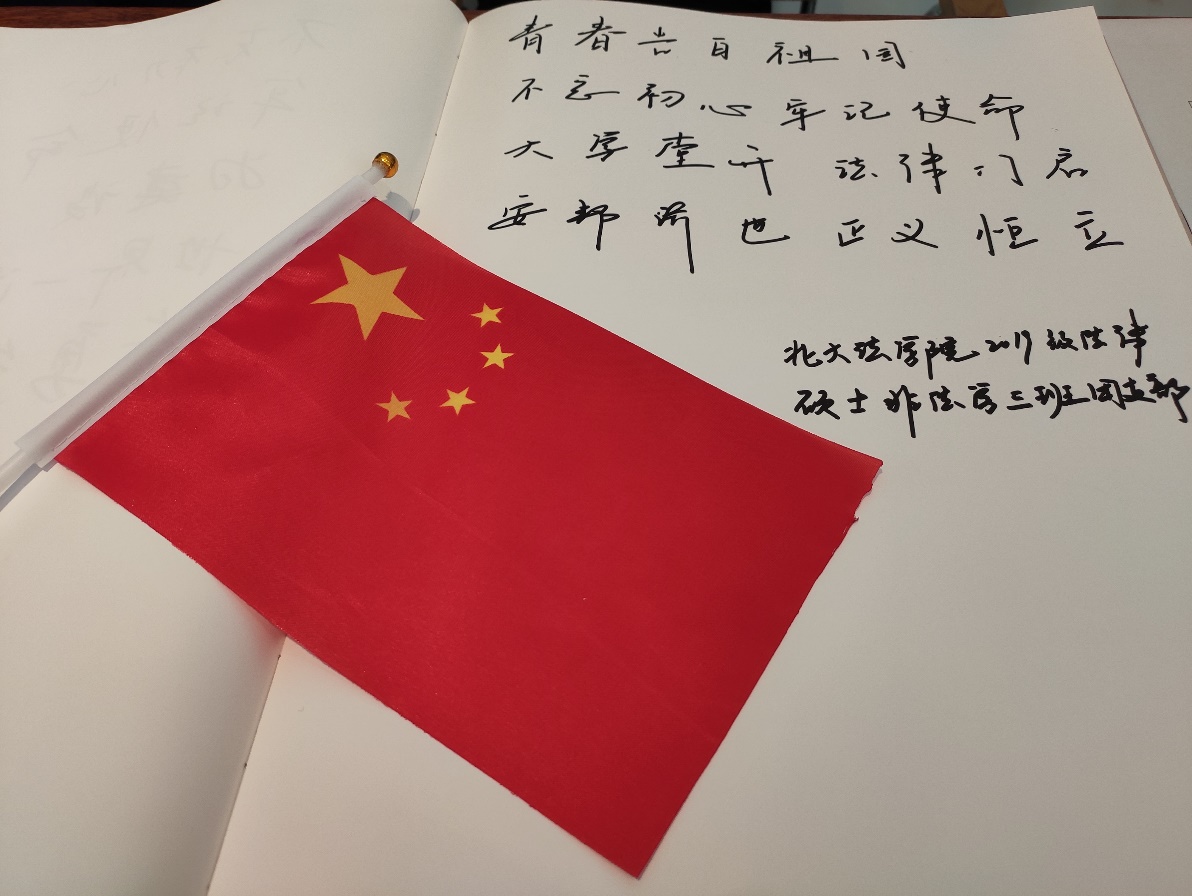 青春告白祖国
不忘初心牢记使命
大学堂开 法律门启
安邦 也 正义恒立
北大法学院2019级法律
硕士非法学三班团支部